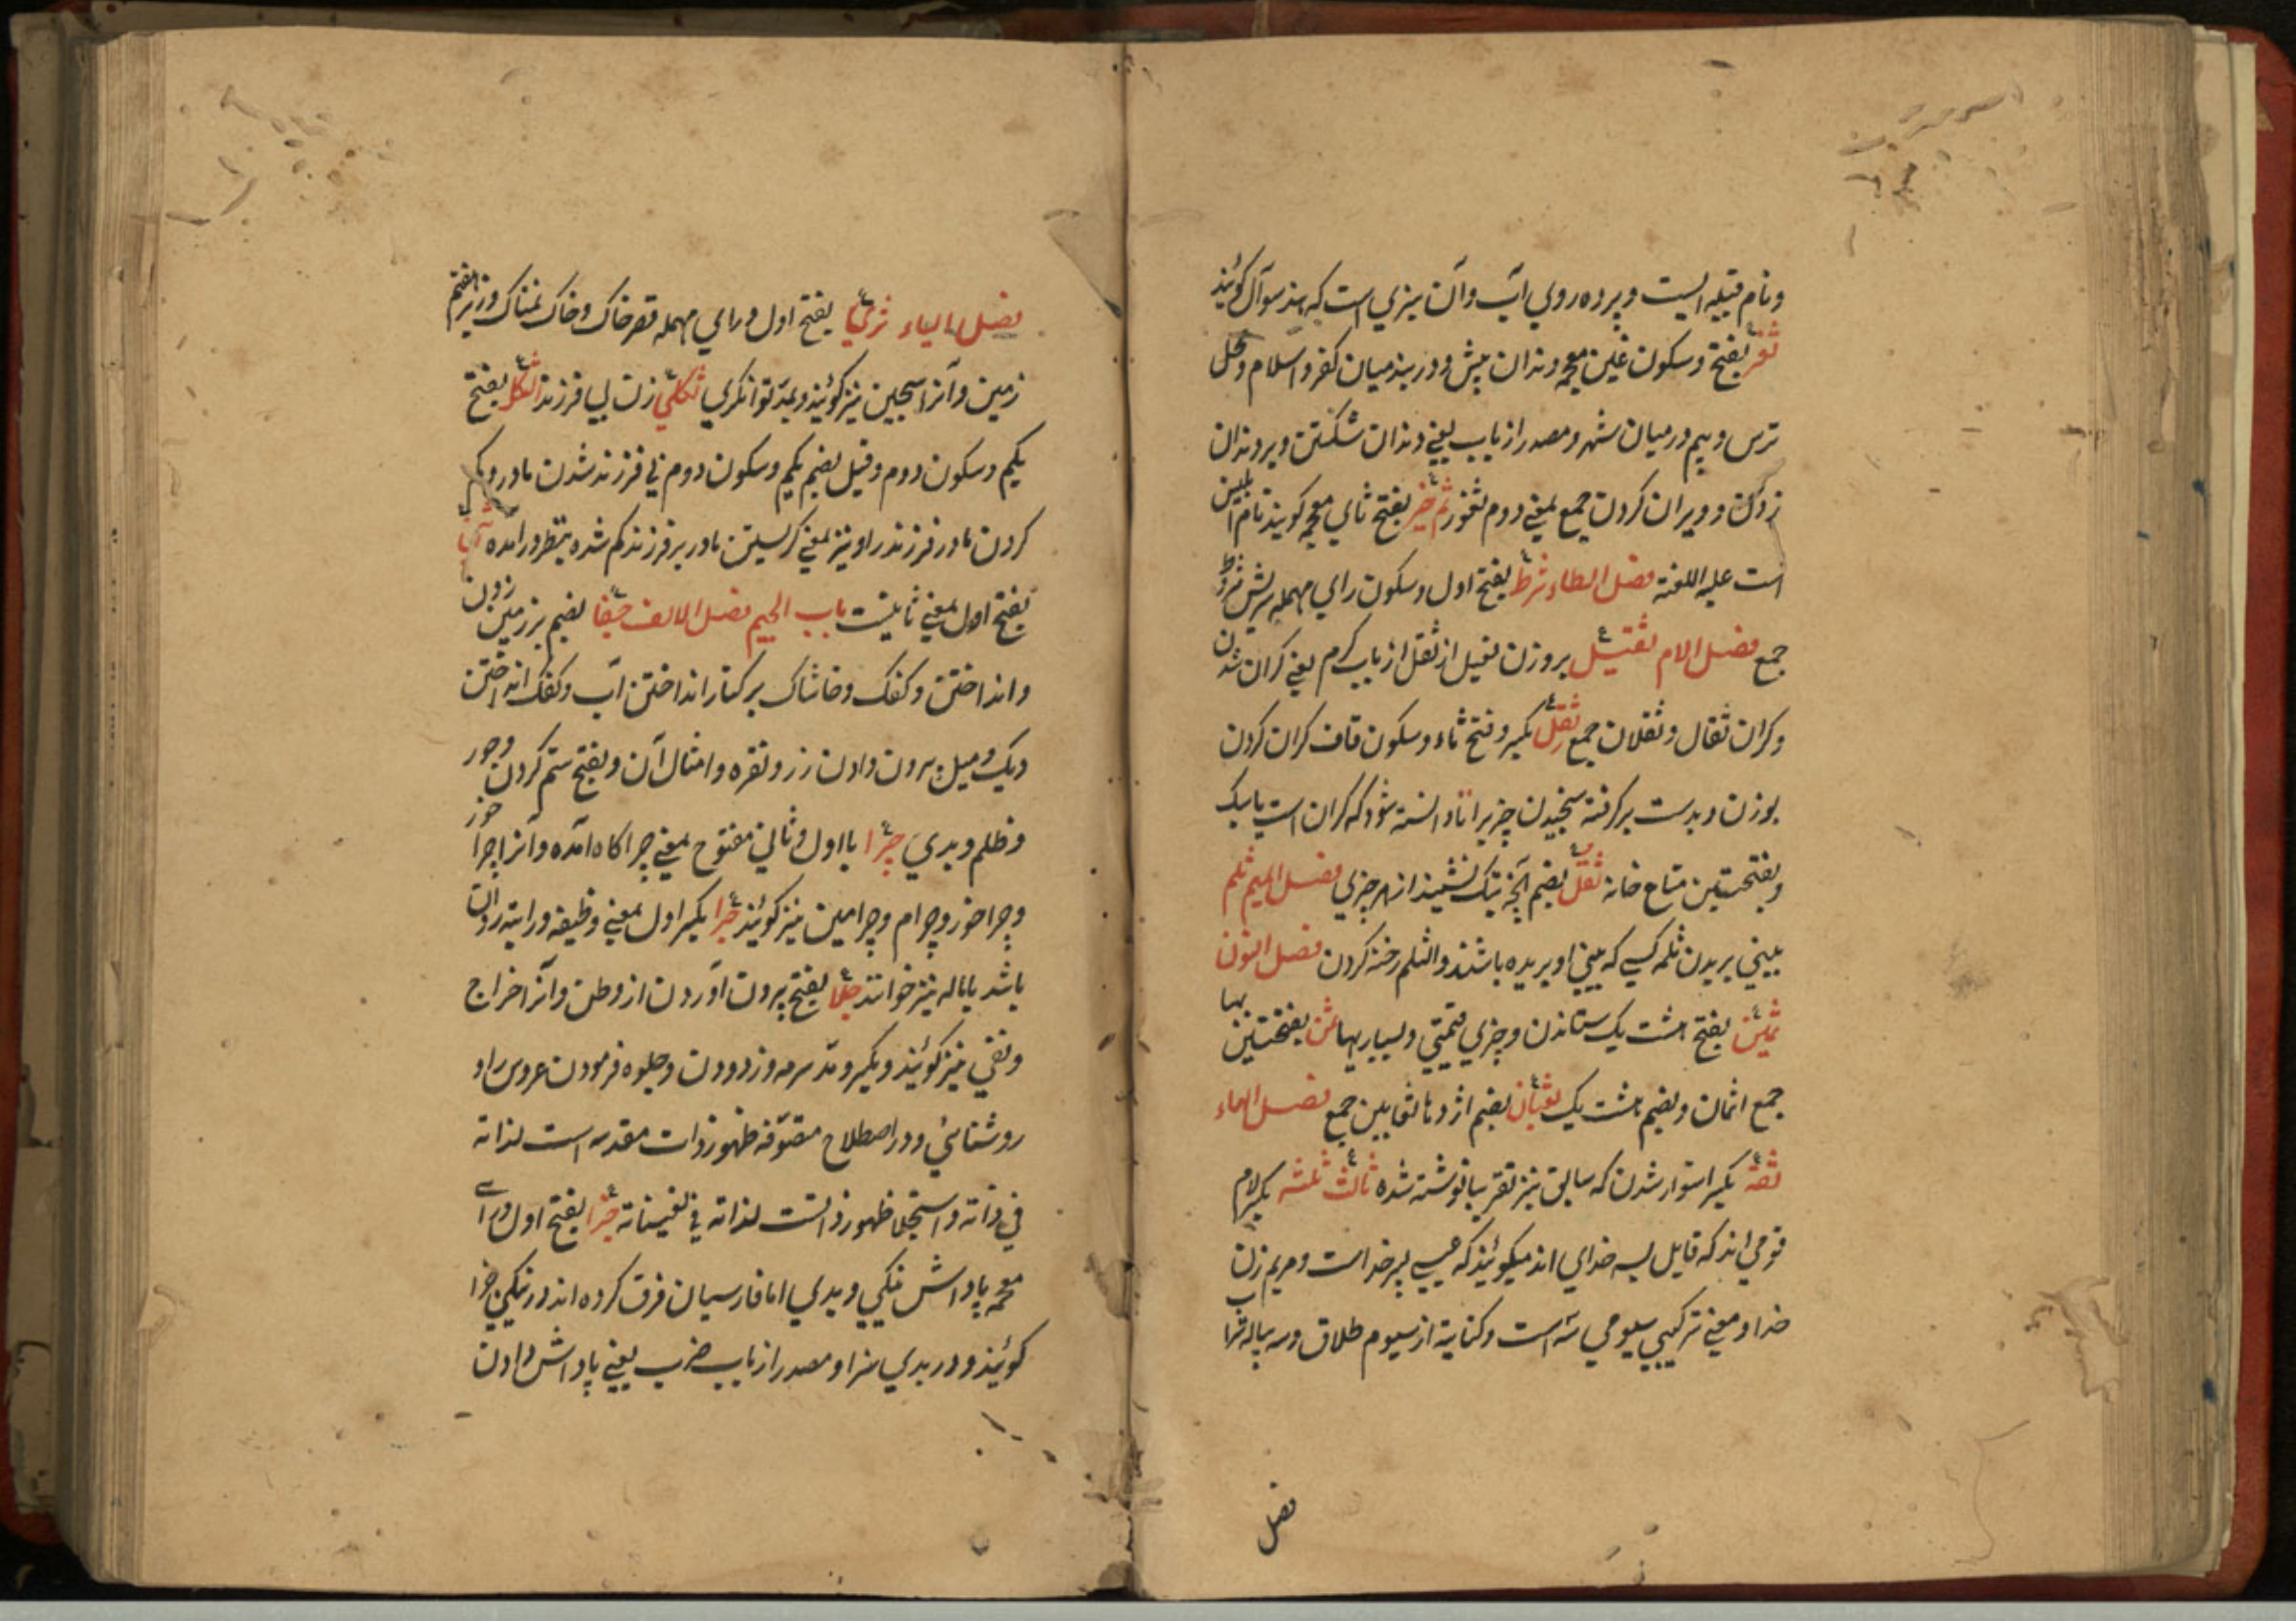 ونام قبیله ایست وپرده روي آب وآن سبزي است که بهند سوال کوئیند
ثغر بفتح وسکون غین معجمه دندان پیش ودر بند میان کفر واسلام ومحل
ترس وبیم درمیان شهر ومصدر از باب یعني دندان شکستن وبر دندان
زدن وویران کردن جمع بمعني دوم ثغور بفتح ثاي معجمه کویند نام ابلیس
است علیه اللعنة فصل الطاء شرط بفتح اول وسکون راي مهمله
جمع فصل الام ثقیل بروزن فعیل از ثقل از باب کرم یعني کران شدن
وکران ثقال وثقلان جمع ثقل بکسر وفتح ثاء وسکون قاف کران کردن
بوزن وبدست برکرفته سنجیدن چیزیرا تا دانسته شود که کران است یا سبک
وبفتحتین متاع خانه ثقل بضم آنچه تنک نشیند از هر چیزي فصل المیم ثلم
بیني بریدن ثلمه کسي که بیني او بریده باشند والثلم رخنه کردن فصل النون
ثمین بفتح هشت یک ستاندن وچیزي قیمتي وبسیار بها ثمن بفتحتین بها
جمع اثمان وبضم هشت یک ثعبان بضم اژدها ثعابین جمع فصل الهاء
ثقة بکسر استوار شدن که سابق نیز تقریبا نوشته شده ثالث ثلثه بکسر لام
قومي اند که قایل بسه خداي اند میکوئیند که عیسي پسر خداست ومریم زن
خدا ومعني ترکیبي سیومي سه است وکنایة از سیوم طلاق وسه پیاله شراب
فصل
فصل الیاء ثري بفتح اول وراي مهمله قعر خاک وخاک نمناک وزیر هفتم
زمین وآنرا سجین نیز کوئیند وبمد توانکري ثکلي زن بي فرزند الثکل بفتح
یکم وسکون دوم وقیل بضم یکم وسکون دوم بي فرزند شدن مادر وکم
کردن مادر فرزند را ونیز بمعني کریستن مادر بر فرزند کم شده بنظر در آمده
بفتح اول بمعني ثانیست باب الجیم فصل الالف جفا بضم بر زمین زدن
وانداختن وکفک وخاشاک بر کنار انداختن آب وکفک انداختن
دیک ومیل بیرون دادن زر ونقره وامثال آن وبفتح ستم کردن وجور
وظلم وبدي چرا با اول وثاني مفتوح بمعني چراکاه آمده وآنرا چرا خور
وچرا خور وچرام وچرامین نیز کوئیند جرا بکسر اول بمعني وظیفه وراتبه روان
باشد باماله نیز خوانند جلا بفتح بیرون آوردن از وطن وآنرا اخراج
ونفي نیز کوئیند وبکسر ومد سرمه وزدودن وجلوه فرمودن عروس را و
روشنائي ودر اصطلاح متصوفه ظهور ذات مقدسه است لذاته
في ذاته واستجلا ظهور ذاتست لذاته في تعیناته جزا بفتح اول وزاي
معجمه پاداش نیکي وبدي اما فارسیان فرق کرده اند در نیکي جزا
کوئیند ودر بدي سزا ومصدر از باب ضرب یعني پاداش دادن